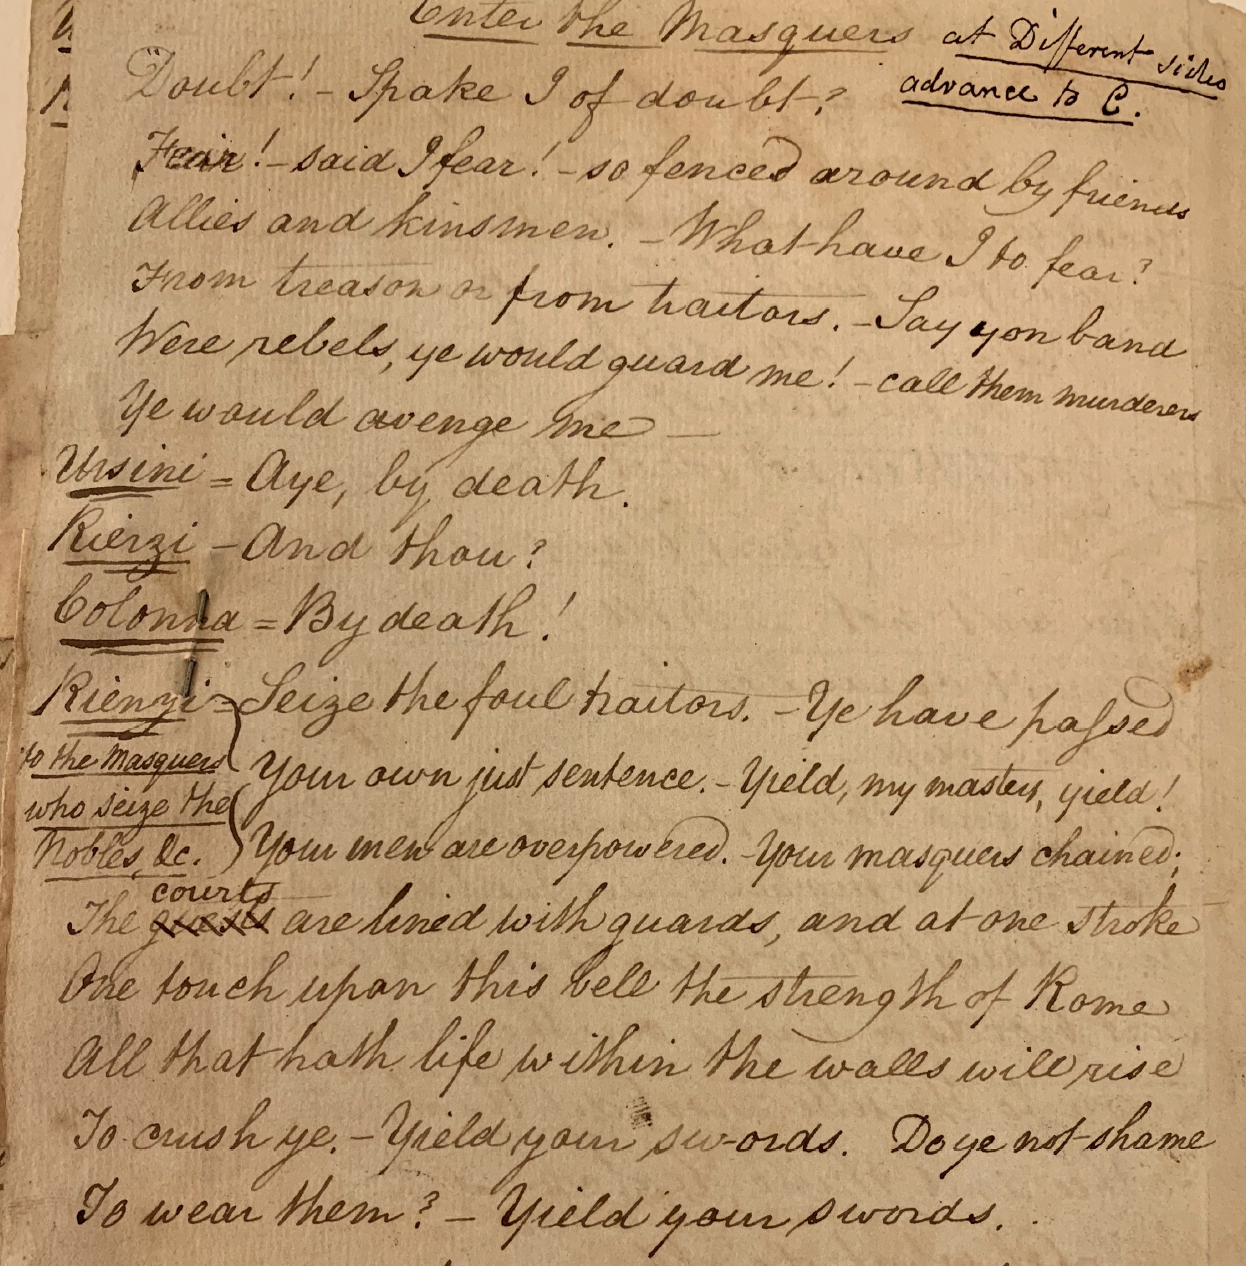 Enter the Masquers at Different sides
advance to C.
Doubt! - Spake I of doubt?
Fear! - said I fear! - so fenced around by friends
Allies and kinsmen. - What have I to fear?
From treason or from traitors. - Say yon band
Were rebels, ye would guard me! - call them murderers
Ye would avenge me -
Ursini = Aye, by death.
Rienzi - And thou?
Colonna = By death!
Rienzi = Seize the foul traitors. - Ye have passed
to the Masquers
Your own just sentence. - Yield, my masters, yield!
who seize the
Nobles, &c.
Your men are overpowered. - Your masquers chained;
courts
The guests are lined with guards, and at one stroke
One touch upon this bell the strength of Rome
All that hath life within the walls will rise
To crush ye. - Yield your swords. Do ye not shame
To wear them? - Yield your swords.